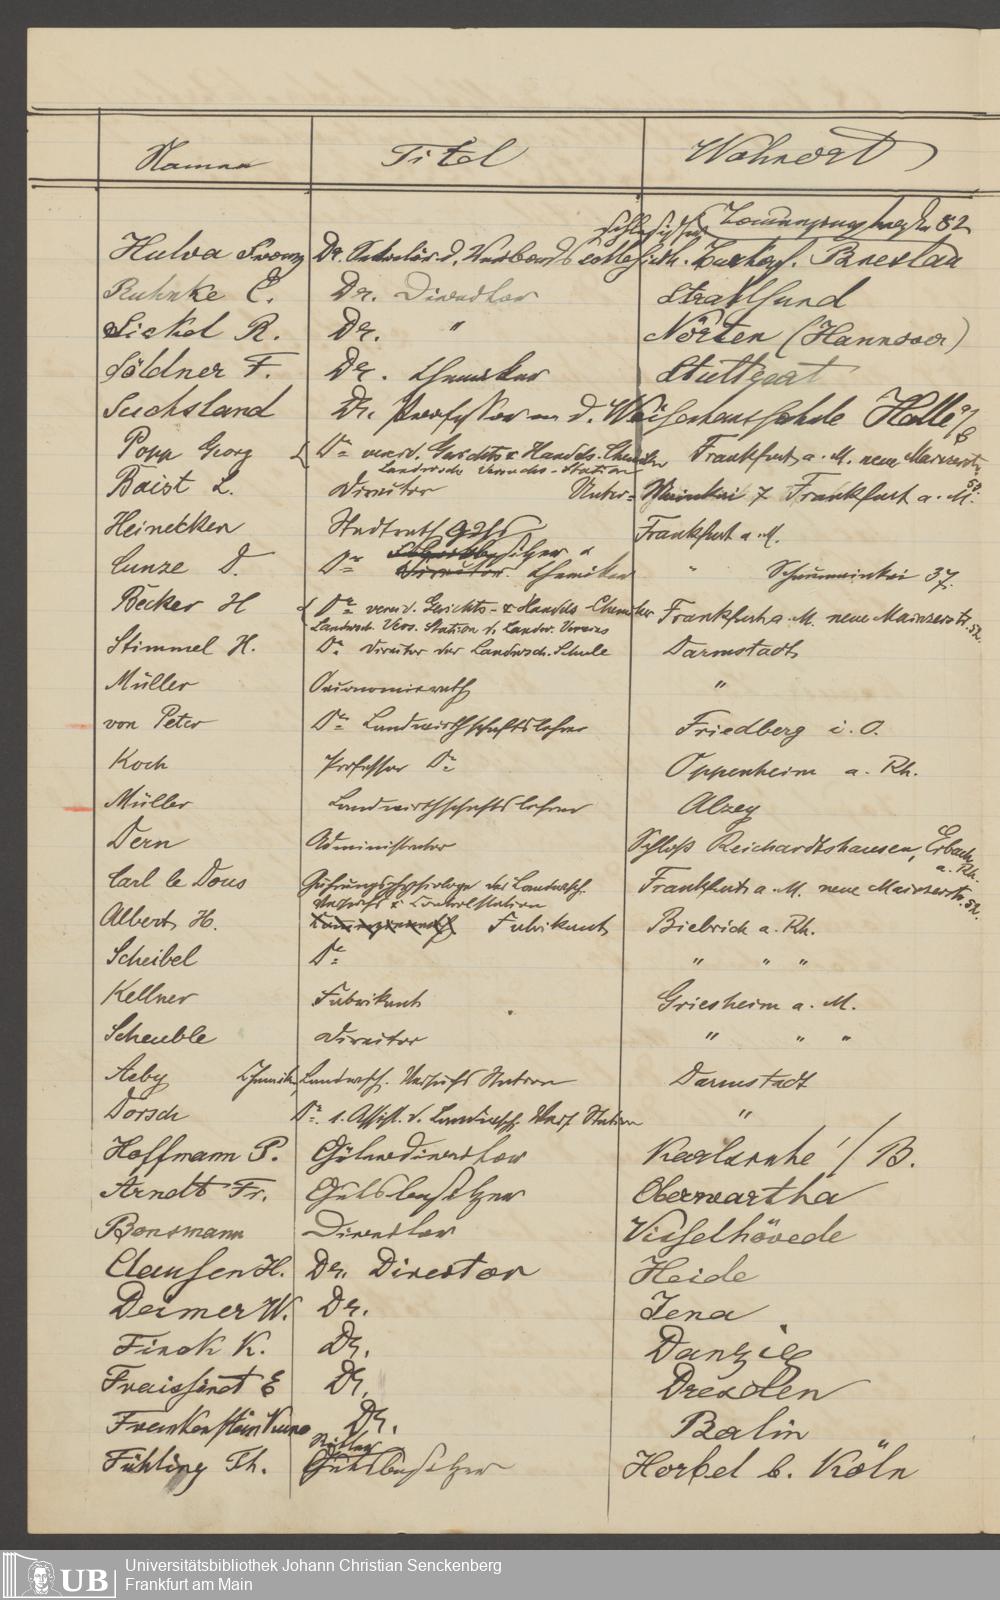 Namen Titel Wohnort
82
Hulva Franz Dr. Sekretär d. Verbands Breslau
Ruhnke C. Dr. Direktor Stralsund
Sickel R. Dr. " Nörten (Hannover)
Söldner F. Dr. Chemiker Stuttgart
Suchsland Dr. Professor an d. Waisenhausschule Halle a/S
Popp Georg Dr. vereid. Gerichts & Handels-Chemiker Frankfurt a. M. neue Mainzerstr. 52.
Landwirthsch. Versuchs-Station
Baist L. Director Unter-Mainkai 7 Frankfurt a. M.
Heinecken Stadtrath Frankfurt a. M.
Cunze D. Dr. Director. Chemiker " Schaumainkai 37.
Becker H Dr. vereid. Gerichts- & Handels-Chemiker Frankfurt a. M. neue Mainzerstr. 52.
Landwirthsch. Vers. Station d. Landw. Vereins
Stimmel H. Dr. Director der Landwirthsch. Schule Darmstadt
Müller Oeconomierath "
von Peter Dr. Landwirthschaftslehrer Friedberg i. O.
Koch Professor Dr. Oppenheim a. Rh.
Müller Landwirthschaftslehrer Alzey
Dern Administrator Schloß Reichardtshausen, Erbach a. Rh.
Carl le Dous Gährungsphysiologe der Landwirthsch. Frankfurt a. M. neue Mainzerstr. 52.
Versuchs & Controlstation
Albert H. Fabrikant Biebrich a. Rh.
Scheibel Dr. " " "
Kellner Fabrikant Griesheim a. M.
Scheuble Director " " "
Aeby Chemik. Landwirthsch. Versuchs Station Darmstadt
Dorsch Dr. 1. Assist. d. Landwirthsch. Vers. Station "
Hoffmann P. Güterdirektor Karlsruhe i/B.
Arndt Fr. Gutsbesitzer Oberwartha
Bonsmann Direktor Visselhövede
Clausen H. Dr. Director Heide
Deimer W. Dr. Jena
Finck K. Dr. Danzig
Fraissinet E Dr. Dresden
Frankenstein Kuno Dr. Berlin
Ritter
Fühling Th. Gutsbesitzer Horbel b. Köln
UB Universitätsbibliothek Johann Christian Senckenberg
Frankfurt am Main